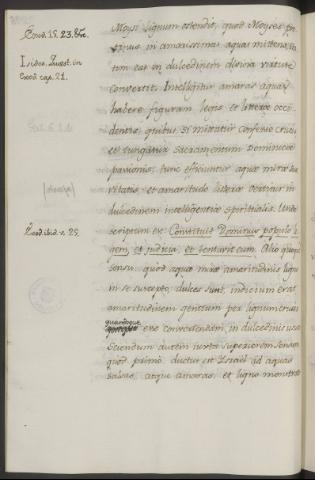 Exod. 15. 23. &c.
Isidor. Quest. in
Exod. cap. 21.
Exod. ibid. v. 25.
Moysi lignum ostendit, quod Moyses
in amarissimas aquas mittens
tum est in dulcedinem divina virtute
convertit. Intelligitur amaras aquas
habere figuram legis et litteræ occi
dentis, quibus si mittatur confessio Crucis
et jungatur Sacramentum Dominicæ
Passionis, tunc efficiuntur aquæ miræ sua
vitatis, et amaritudo litteræ vertitur in
dulcedinem intelligentiæ spiritualis. Unde
scriptum est: Constituit Dominus populo le
gem, et judicia, et tentavit eum. Alio quoque
sensu, quod aquæ maræ amaritudinis lignum
in se suscepto dulces sunt, indicium erat
amaritudinem gentium per lignum crucis
quandoque
esse convertendam in dulcedinis usum
Sciendum autem juxta superiorem sensum
quod primo ductus est Israel ad aquas
salsas, atque amaras, et ligno monstrato